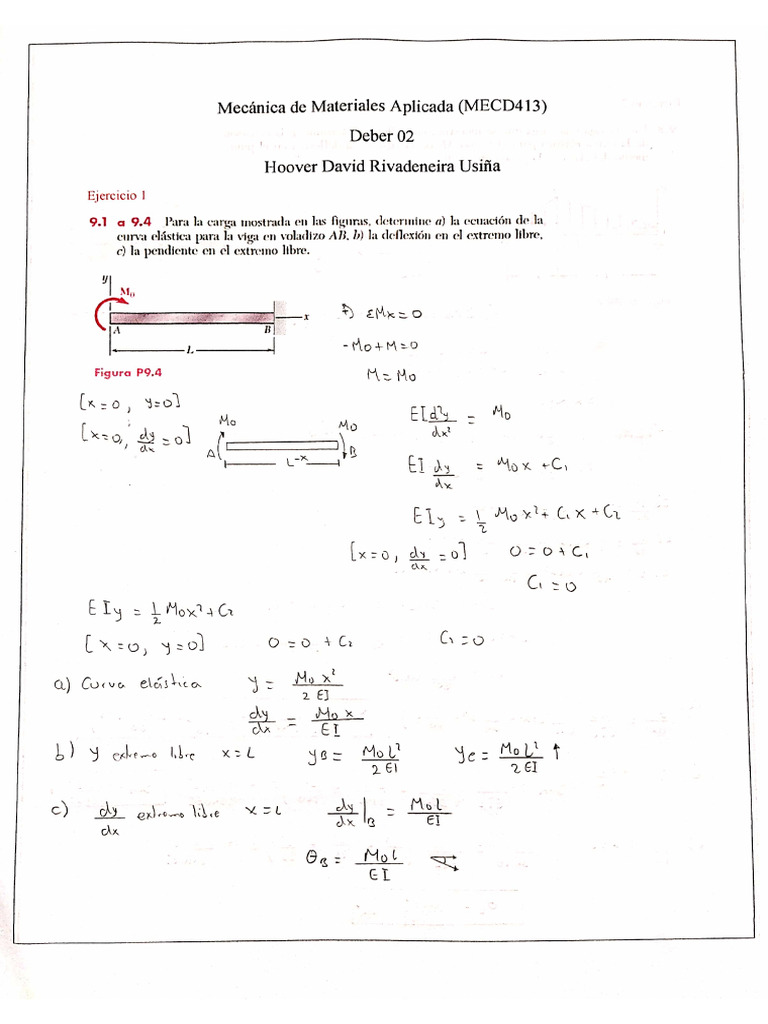 Mecánica de Materiales Aplicada (MECD413)
Deber 02
Hoover David Rivadeneira Usiña
Ejercicio 1
9.1 a 9.4 Para la carga mostrada en las figuras, determine a) la ecuación de la
curva elástica para la viga en voladizo AB, b) la deflexión en el extremo libre,
c) la pendiente en el extremo libre.
y
M₀
x
A B
L
Figura P9.4
ΣMx = 0
-M₀ + M = 0
M = M₀
[x=0, y=0]
[x=0, dy/dx = 0]
M₀ M₀
A B
L-x
EI d²y/dx² = M₀
EI dy/dx = M₀x + C₁
EIy = 1/2 M₀x² + C₁x + C₂
[x=0, dy/dx = 0] 0 = 0 + C₁
C₁ = 0
EIy = 1/2 M₀x² + C₂
[x=0, y=0] 0 = 0 + C₂ C₂ = 0
a) Curva elástica y = M₀x²/2EI
dy/dx = M₀x/EI
b) y extremo libre x = L yB = M₀L²/2EI yC = M₀L²/2EI ↑
c) dy/dx extremo libre x = L dy/dx|B = M₀L/EI
θB = M₀L/EI